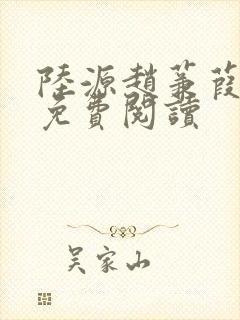 陸源趙蒹葭
免費閱讀
吴家山